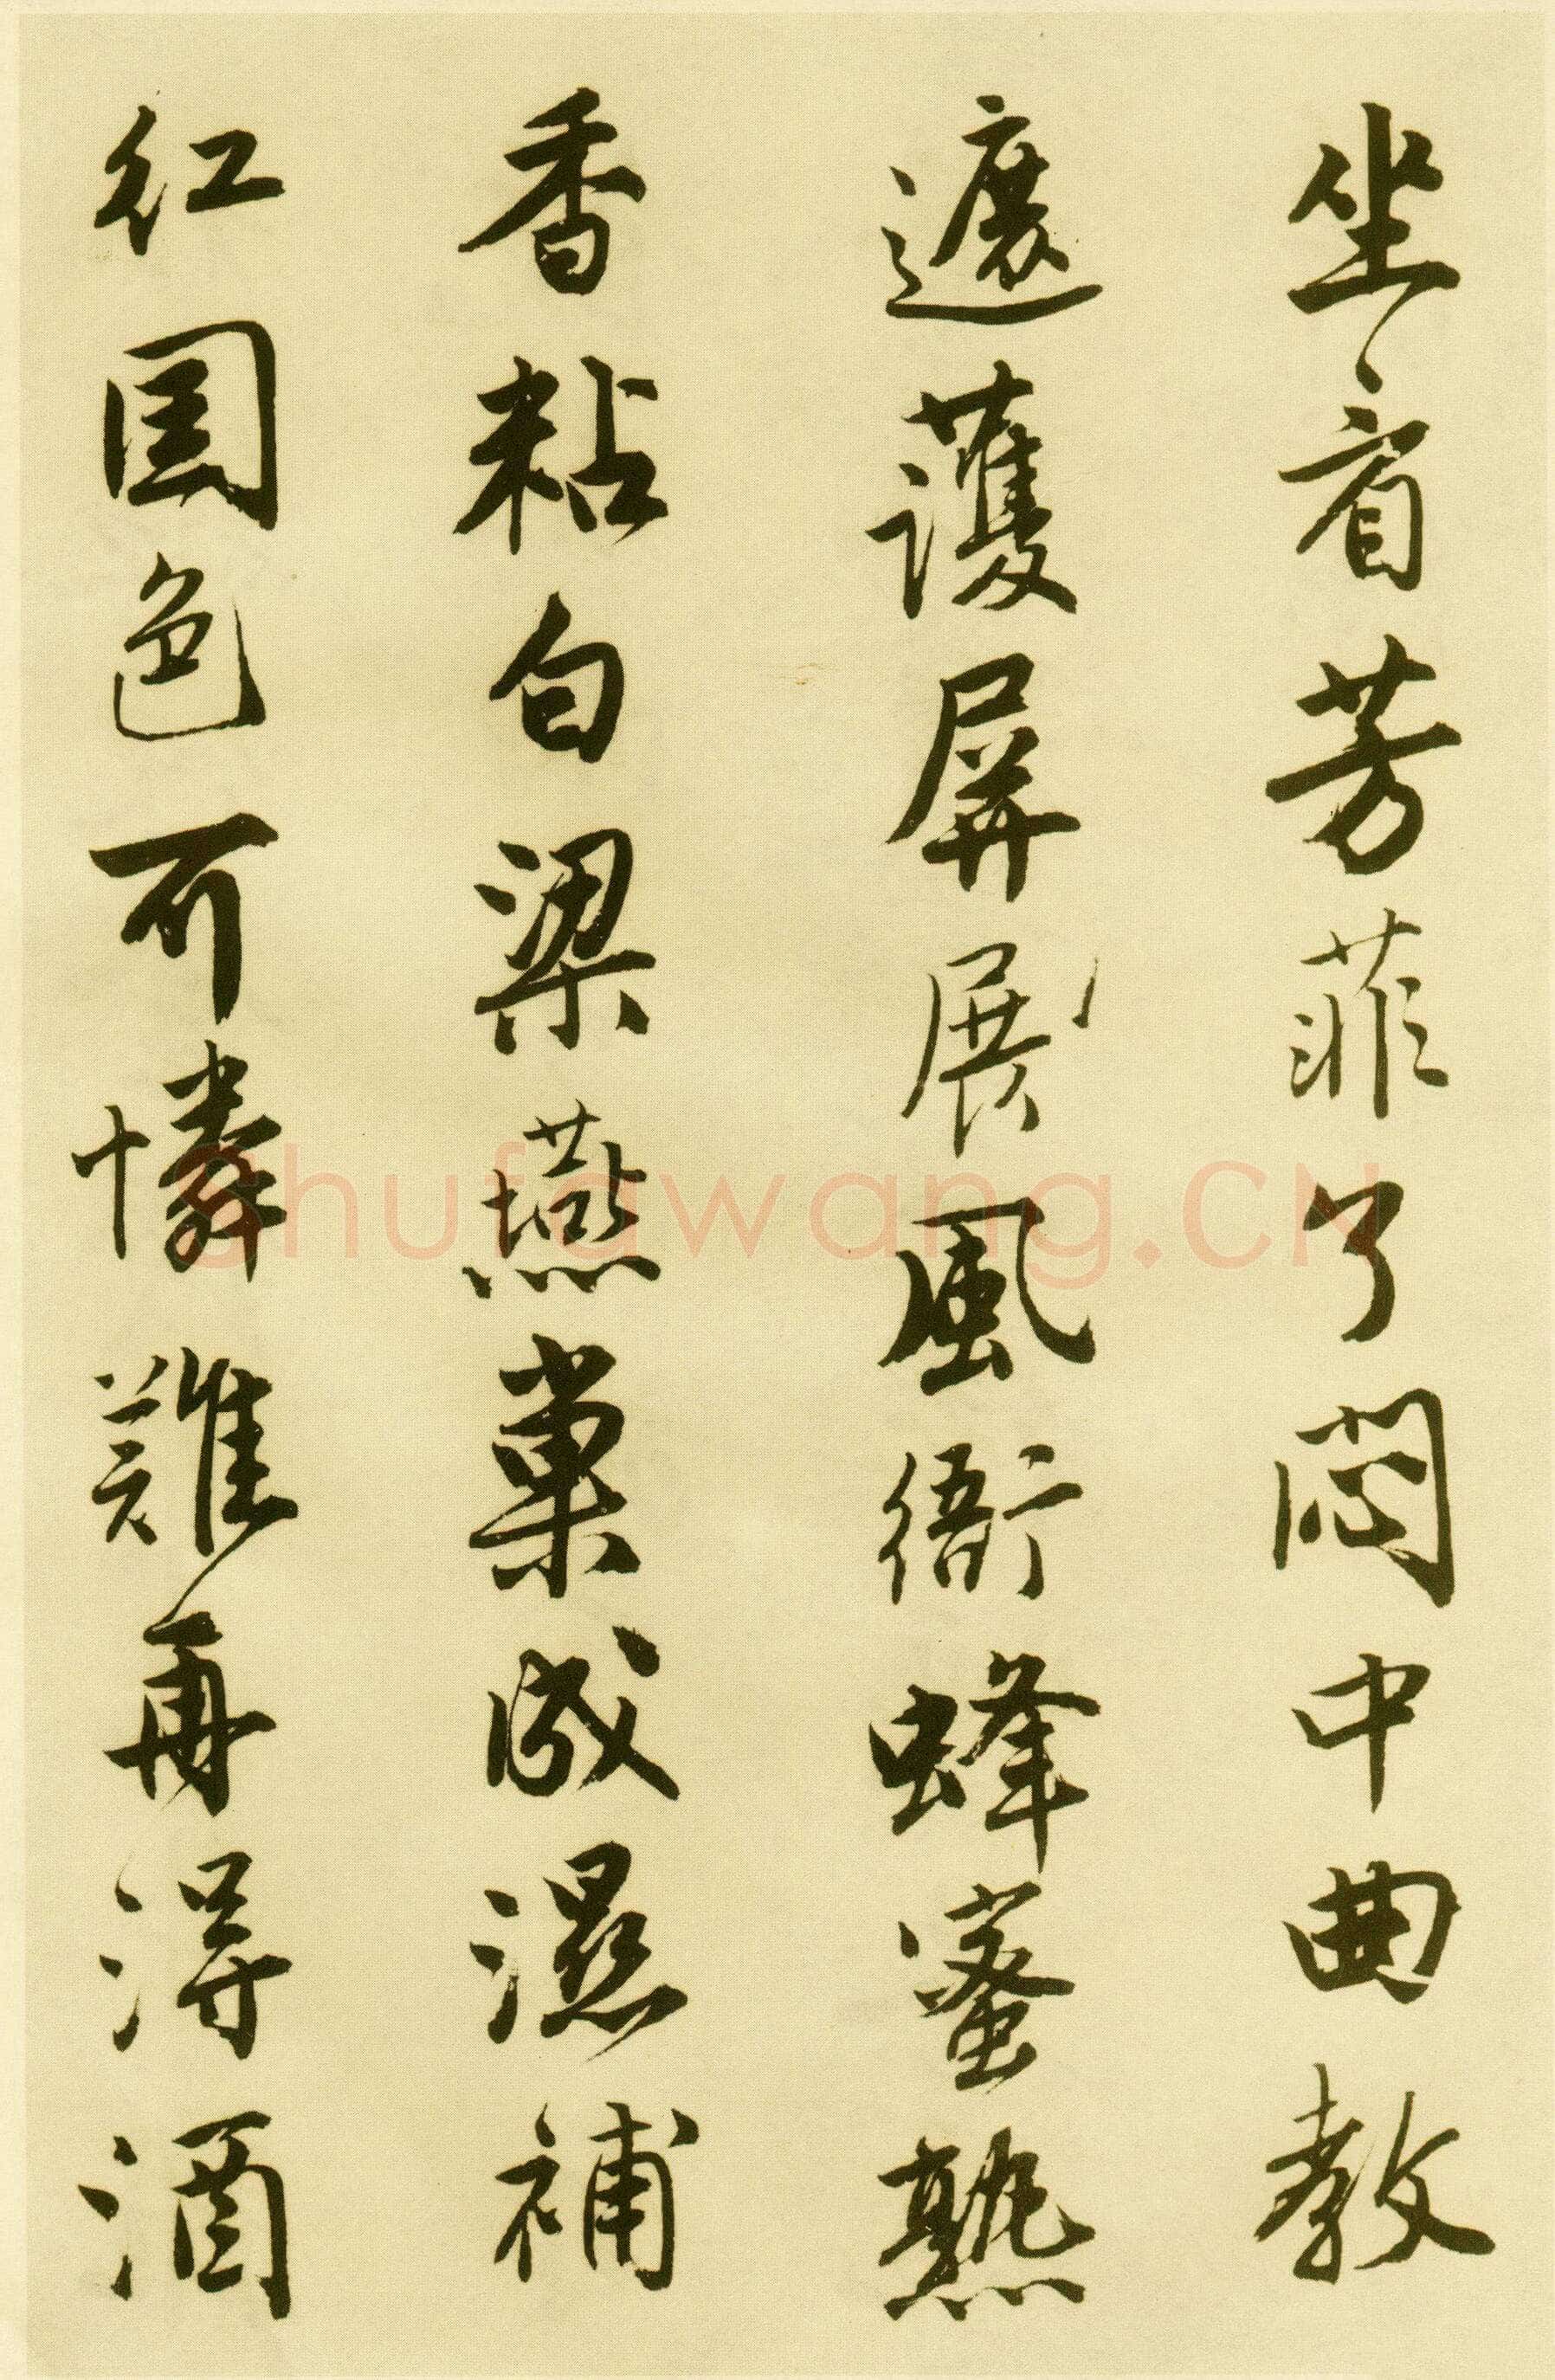 坐看芳菲了悶中曲教
遮護屏展風銜蜂蜜熟
香粘白梁燕巢成濕補
紅國色可憐難再得酒
shufawang.CN